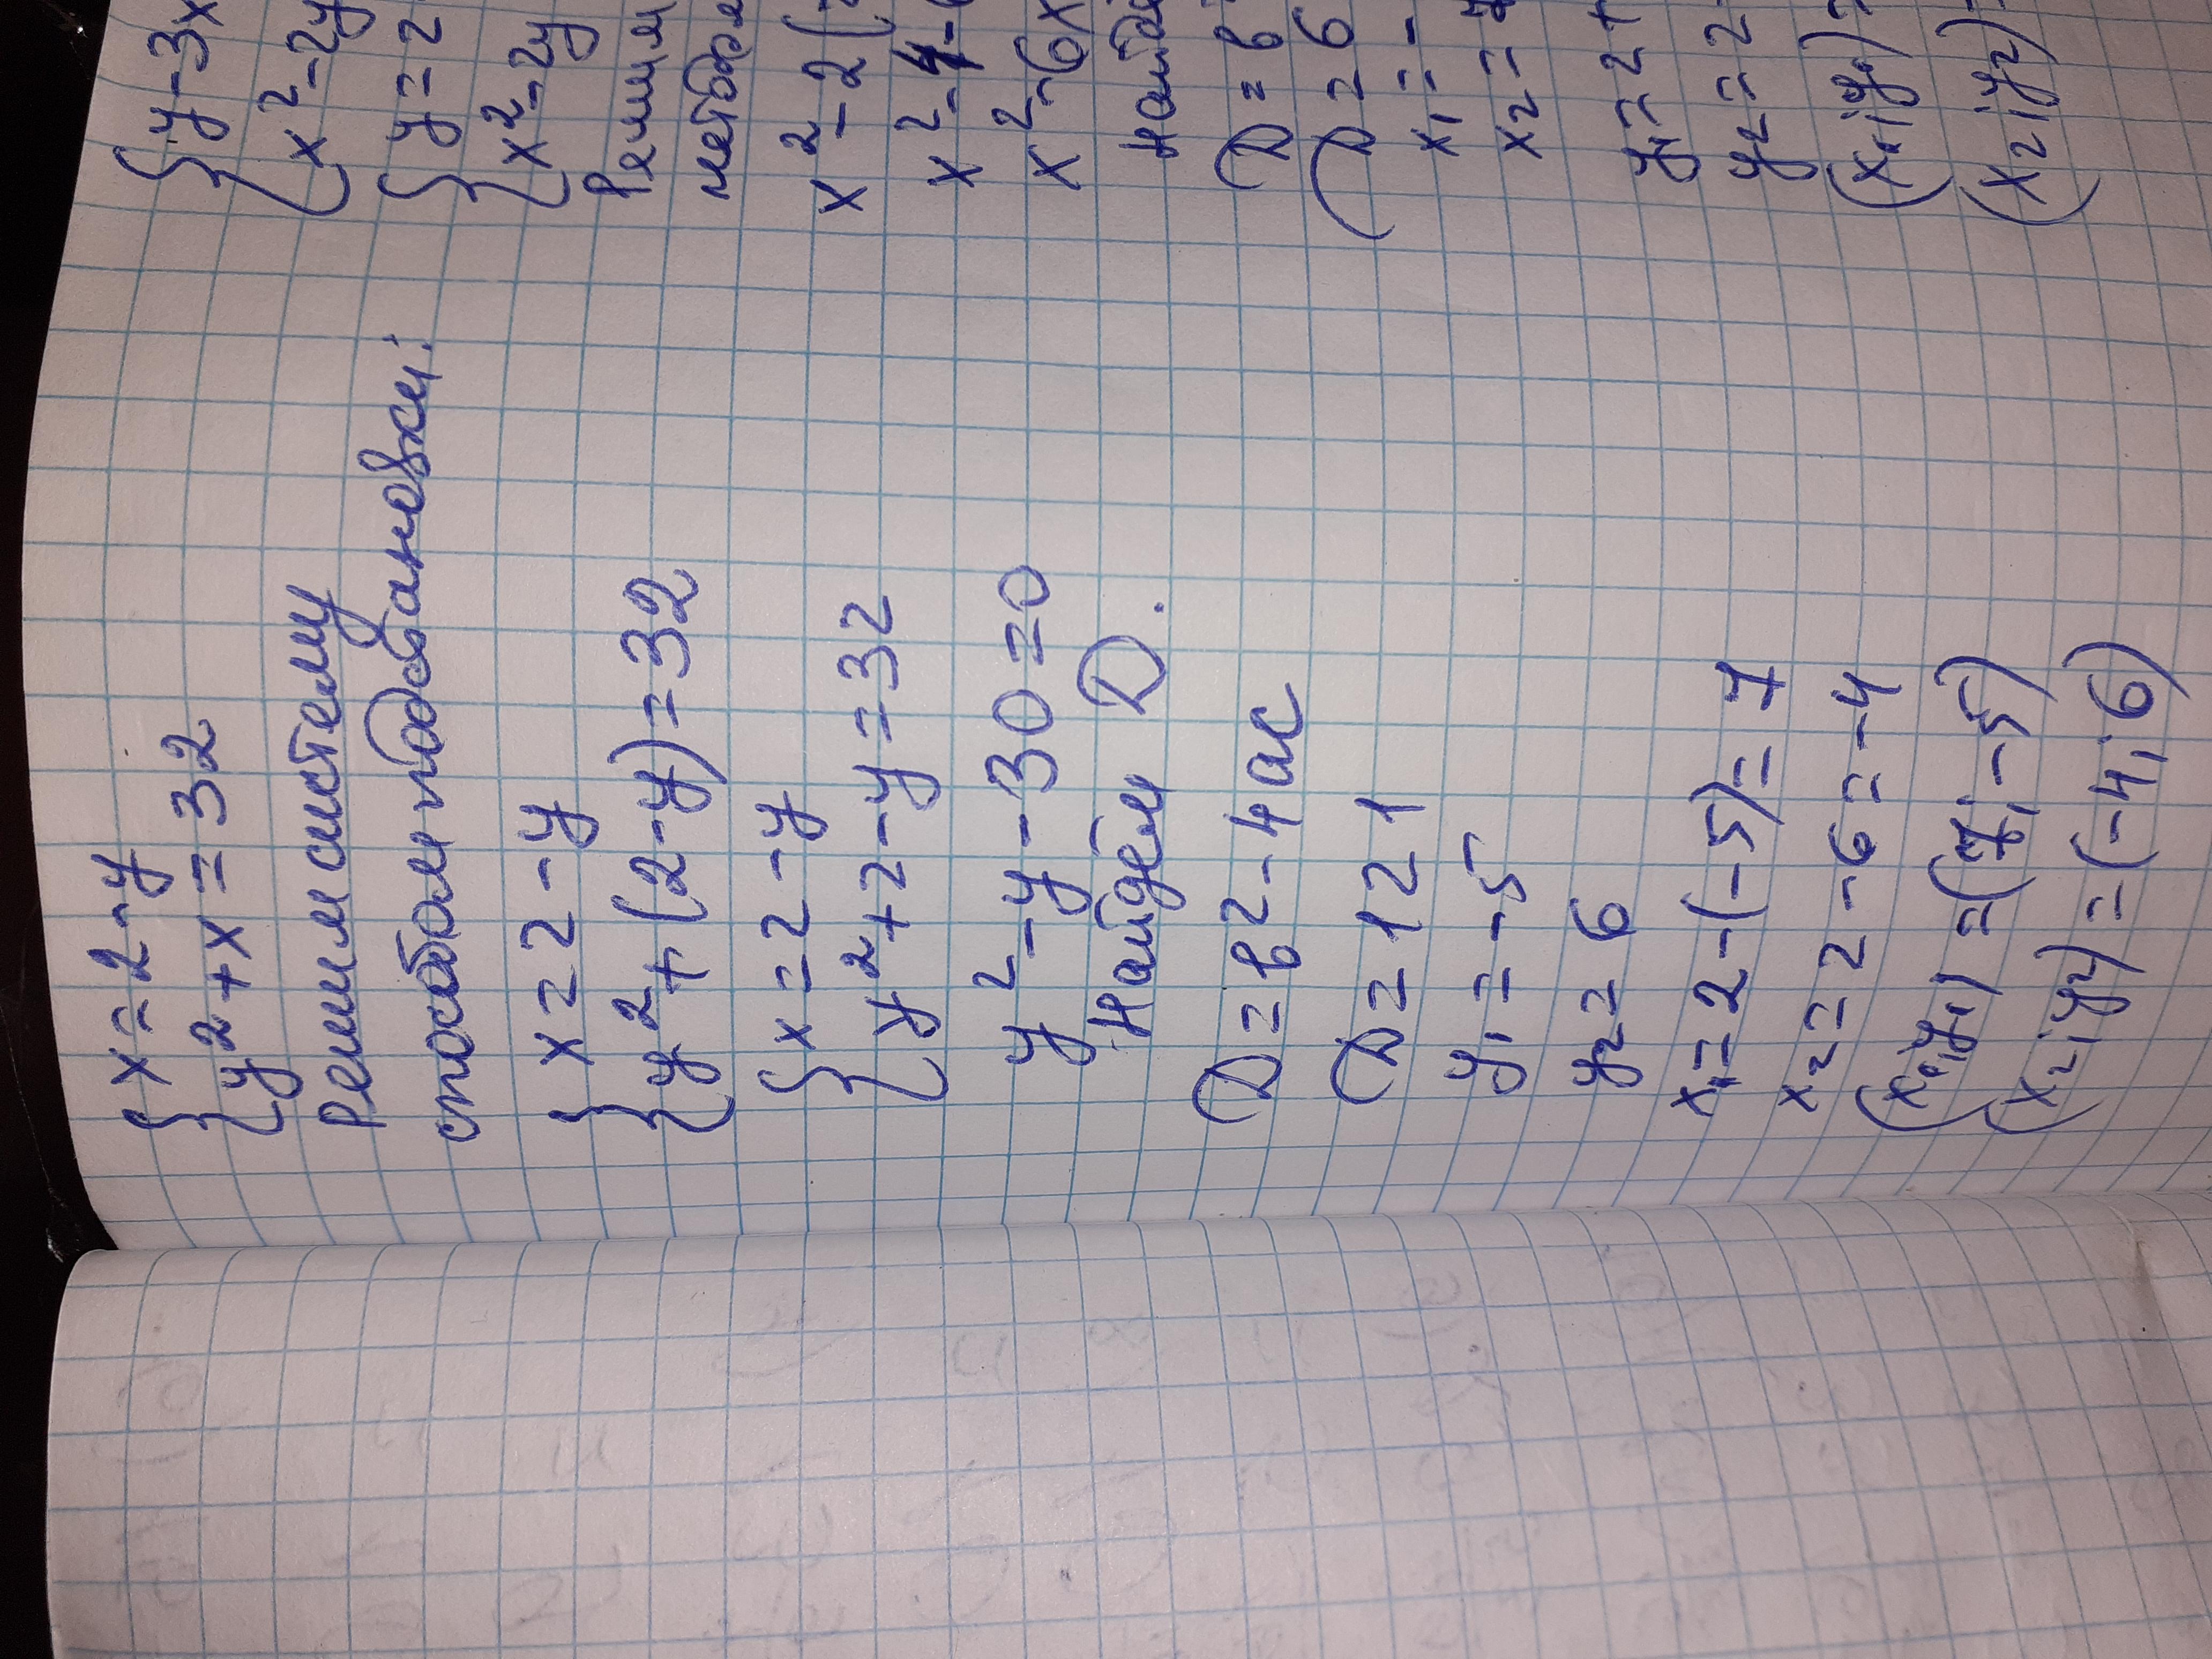 x=2-y
y²+x=32
Решим систему
способом подстановки:
x=2-y
y²+(2-y)=32
x=2-y
y²+2-y=32
y²-y-30=0
Найдём D.
D=в²-4ас
D=121
y₁=-5
y₂=6
x₁=2-(-5)=7
x₂=2-6=-4
(x₁;y₁)=(7;-5)
(x₂;y₂)=(-4;6)
y-3x
x²-2y
y=2
x²-2y
Решим
x²-2(
x²-4-
x²-6x
D=в
D=6
x₁=-
x₂=
y₁=2+
y₂=2
(x₁;y₁)=
(x₂;y₂)